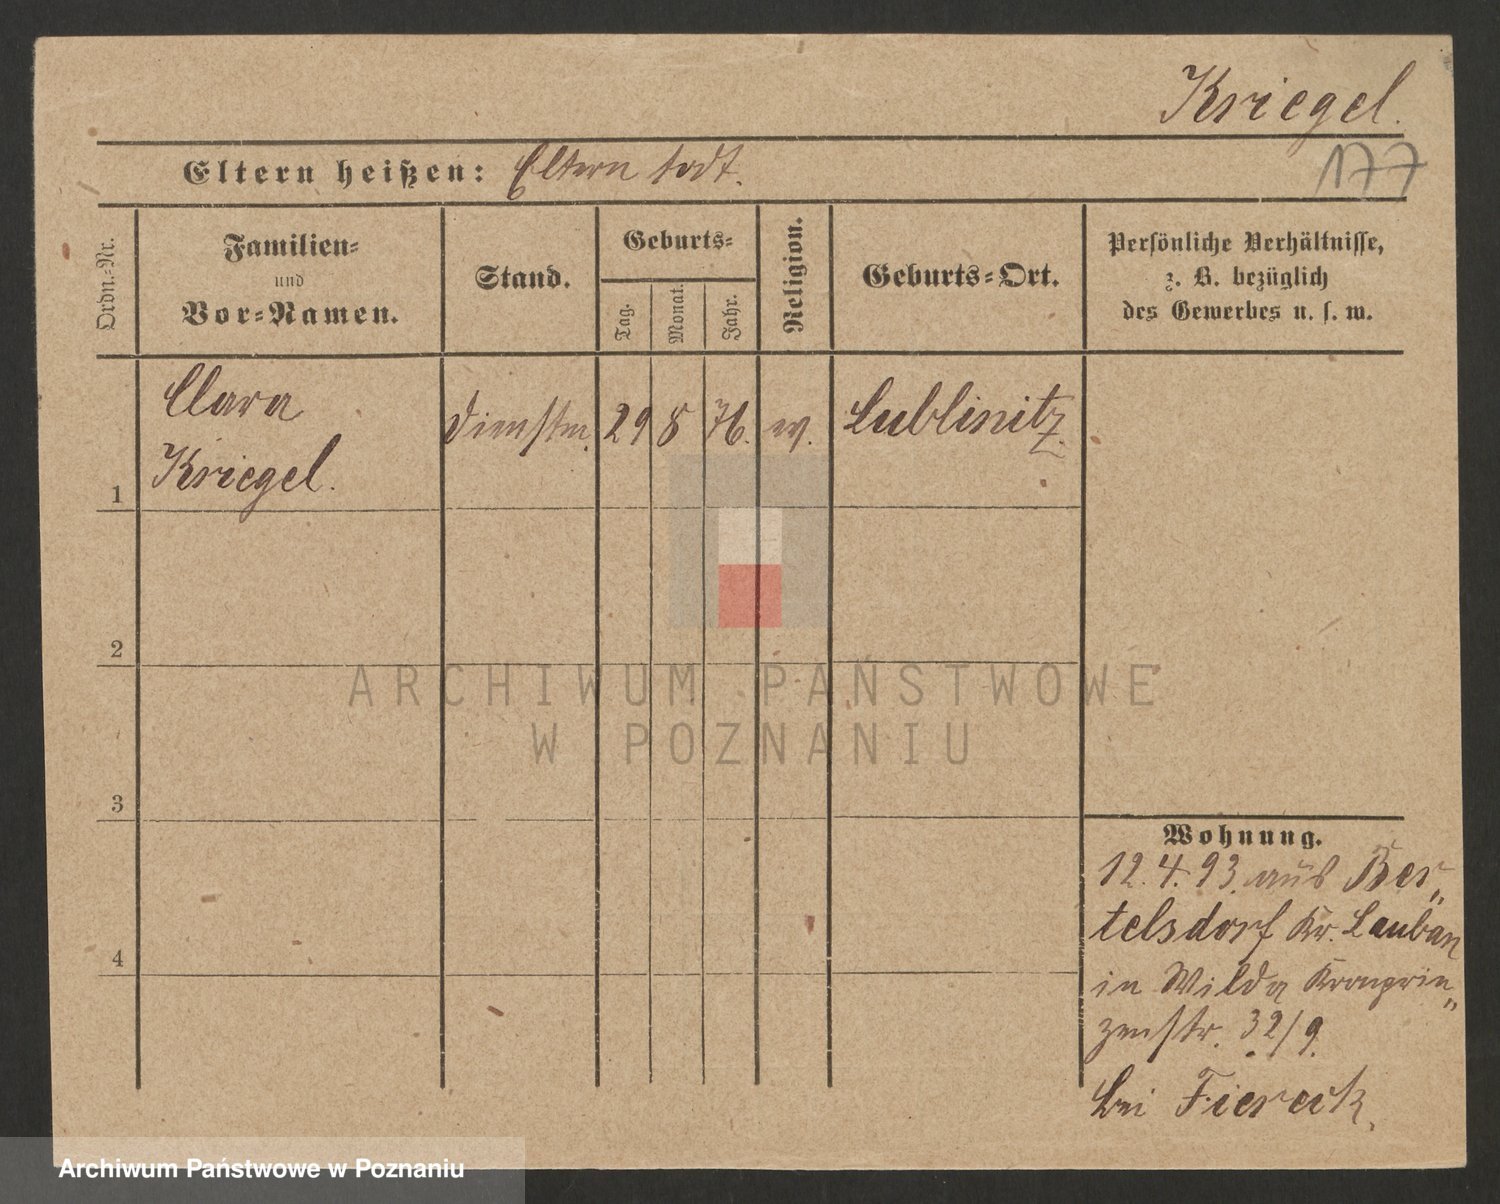 Kriegel.
Eltern heißen: Eltern todt.
177
Ordn.-Nr.
Familien-
und
Vor-Namen.
Stand.
Geburts-
Tag.
Monat.
Jahr.
Religion.
Geburts-Ort.
Persönliche Verhältnisse,
z. B. bezüglich
des Gewerbes u. s. w.
Clara
Kriegel.
1
Dienstm.
29
8
76.
ev.
Lublinitz.
2
3
4
ARCHIWUM PAŃSTWOWE
W POZNANIU
Wohnung.
12.4.93. aus Ber„
telsdorf Kr. Lauban
in Wilda Kronprin„
zenstr. 32/9.
bei Fiereck.
Archiwum Państwowe w Poznaniu